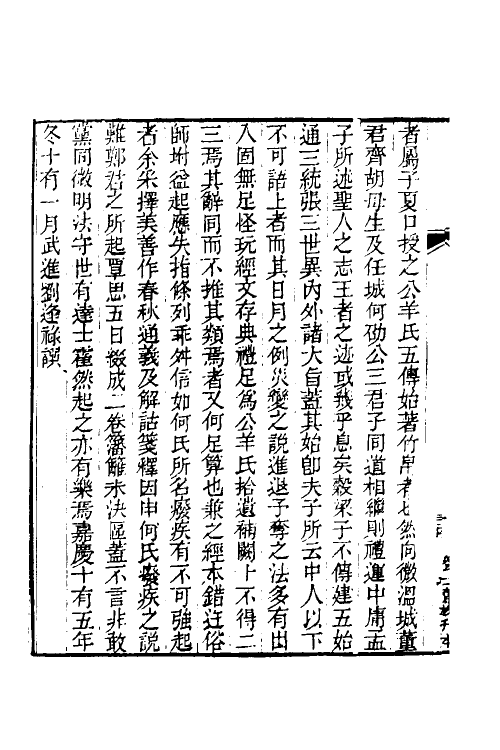 者屬子夏口授之公羊氏五傳始著竹帛者也然向微溫城董
君齊胡母生及任城何劭公三君子同道相繼則禮運中庸孟
子所述聖人之志王者之迹或幾乎息矣穀梁子不傳建五始
通三統張三世異內外諸大旨蓋其始卽夫子所云中人以下
不可語上者而其日月之例災變之說進退予奪之法多有出
入固無足怪玩經文存典禮足爲公羊氏拾遺補闕十不得二
三焉其辭同而不推其類焉者又何足算也兼之經本錯迕俗
師坿益起應失指條列乖舛信如何氏所名廢疾有不可強起
者余采擇美善作春秋通義及解詁箋釋因申何氏廢疾之說
難鄭君之所起覃思五日綴成二卷籓籬未決區蓋不言非敢
黨同微明法守世有達士霍然起之亦有樂焉嘉慶十有五年
冬十有一月武進劉逢祿譔